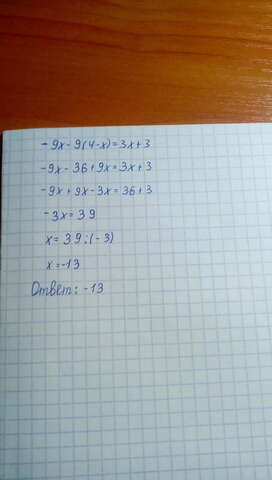 -9x-9(4-x)=3x+3
-9x-36+9x=3x+3
-9x+9x-3x=36+3
-3x=39
x=39:(-3)
x=-13
Ответ: -13